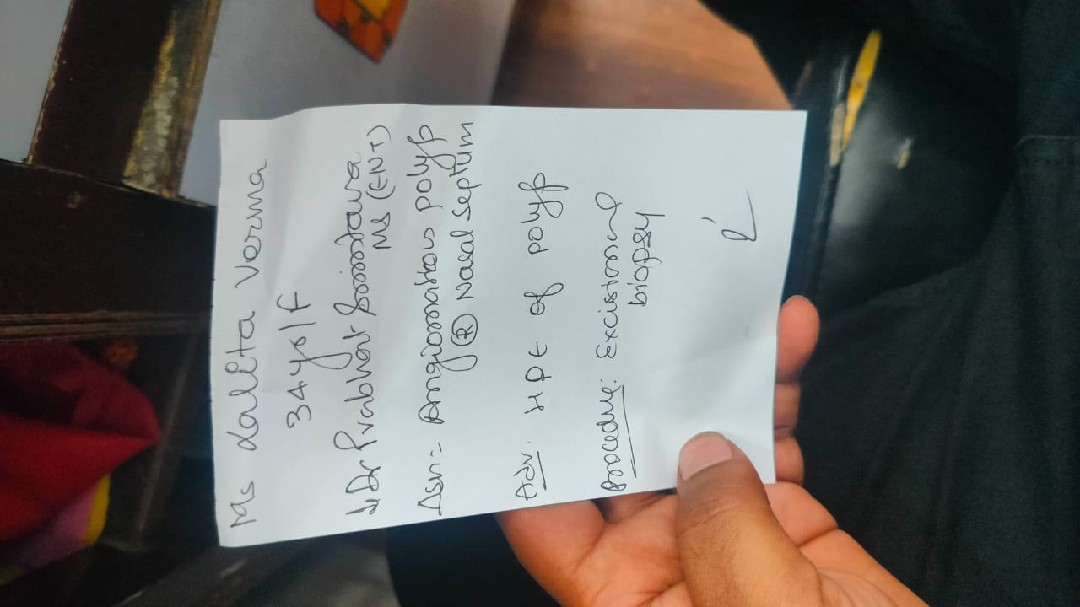 Ms Lalita Verma
34 yo/f
Dr Prabhat Srivastava
MS (ENT)
Δsn= Angiomatous polyp
(R) Nasal septum
Adv: HPE of polyp
Procedure: Excisional
biopsy